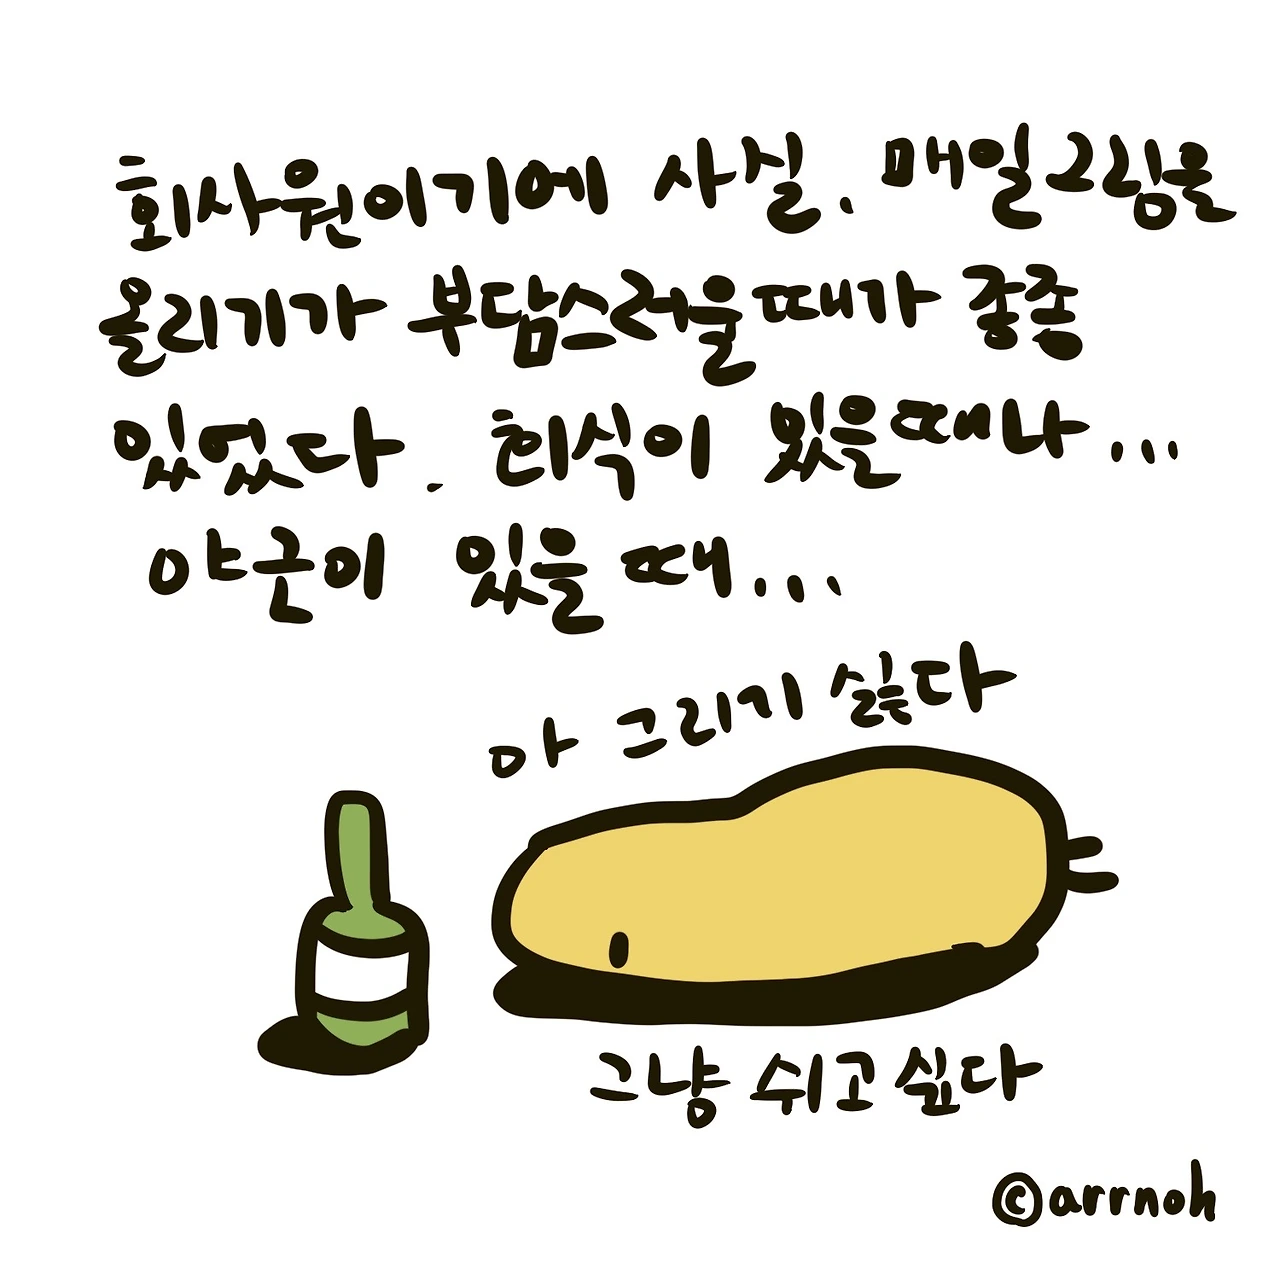 회사원이기에 사실, 매일 그림을
올리기가 부담스러울때가 종종
있었다. 회식이 있을때나...
야근이 있을 때...
아 그리기 싫다
그냥 쉬고싶다
©arrnoh